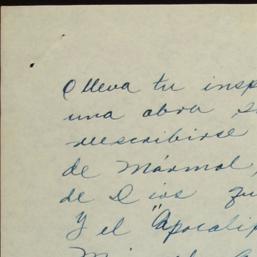 lleva tu insp
una obra s
reescribirse
de Mármol,
de Dios
Y el "Apocalip